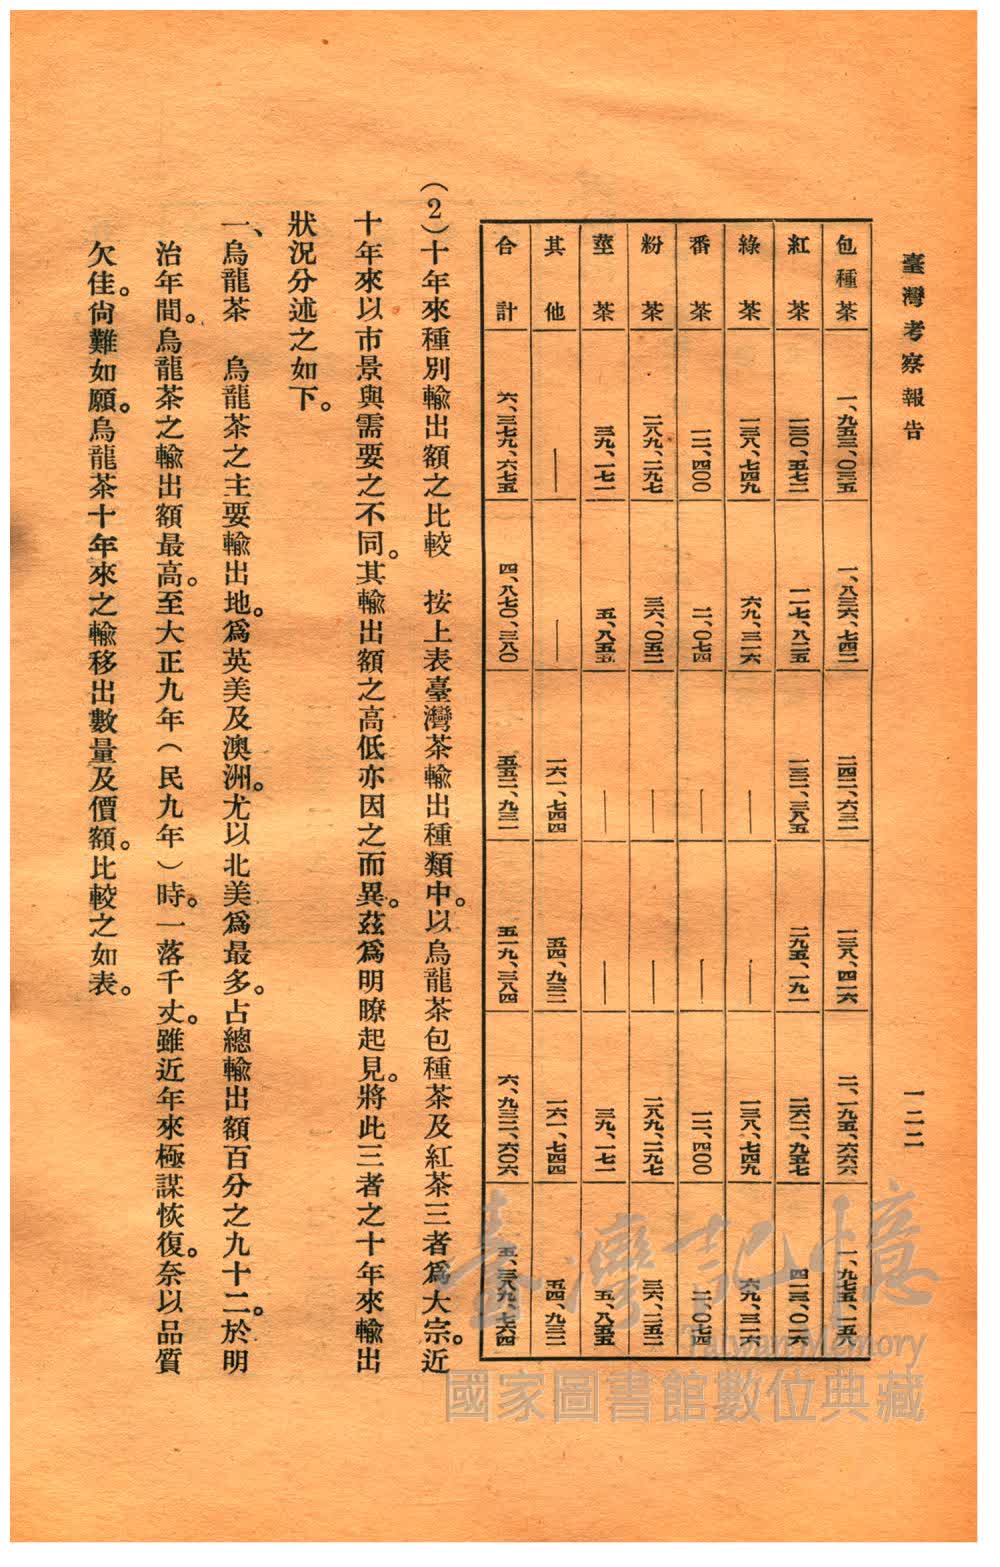 臺灣考察報告
一二二
包種茶 一、九五三、〇三五 一、八三六、七四二 二四二、六三一 一三八、四一六 二、一九五、六六六 一、九七五、一五八
紅茶 一三〇、五七二 一一七、八二五 一三二、三八五 二九五、一九一 二六二、九五七 四一三、〇一六
綠茶 一三八、七四九 六九、三一六 — — 一三八、七四九 六九、三一六
番茶 一二、四〇〇 二、〇七四 — — 一二、四〇〇 二、〇七四
粉茶 二八九、二九七 三六、〇五二 — — 二八九、二九七 三六、二五二
莖茶 三九、一七一 五、八五五 — — 三九、一七一 五、八五五
其他 — — 一六一、七四四 五四、九三二 一六一、七四四 五四、九三二
合計 六、三七九、六七五 四、八七〇、三八〇 五五二、九三一 五一九、三八四 六、九三二、六〇六 五、三八九、七六四
(2)十年來種別輸出額之比較 按上表臺灣茶輸出種類中。以烏龍茶包種茶及紅茶三者爲大宗。近
十年來以市景與需要之不同。其輸出額之高低亦因之而異。茲爲明瞭起見。將此三者之十年來輸出
狀況分述之如下。
一、烏龍茶 烏龍茶之主要輸出地。爲英美及澳洲。尤以北美爲最多。占總輸出額百分之九十二。於明
治年間。烏龍茶之輸出額最高。至大正九年(民九年)時。一落千丈。雖近年來極謀恢復。奈以品質
欠佳。尙難如願。烏龍茶十年來之輸移出數量及價額。比較之如表。
臺灣記憶
Taiwan Memory
國家圖書館數位典藏